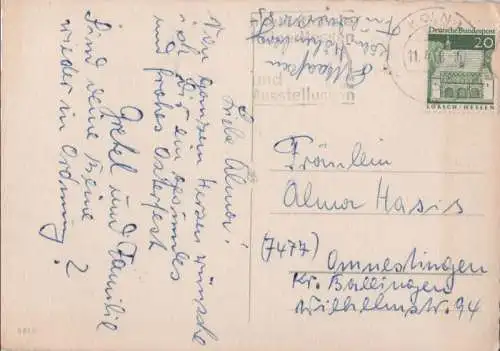 Liebe Alma!
Von ganzem Herzen wünsche
ich Dir ein gesundes
und frohes Osterfest
Gretel und Familie
Sind deine Beine
wieder in Ordnung?
und
Ausstellungen
KÖLN
11.
Deutsche Bundespost
20
LORSCH/HESSEN
Fräulein
Alma Hasis
(7477) Onmestingen
Kr. Balingen
Wilhelmstr. 94